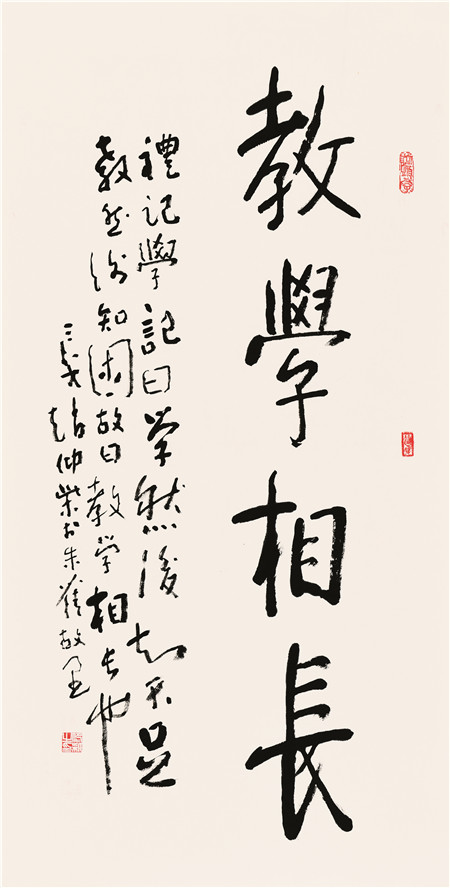 教學相長
禮記學記曰学然後知不足
教然後知困故曰教学相长也
趙仲 於朱 故里